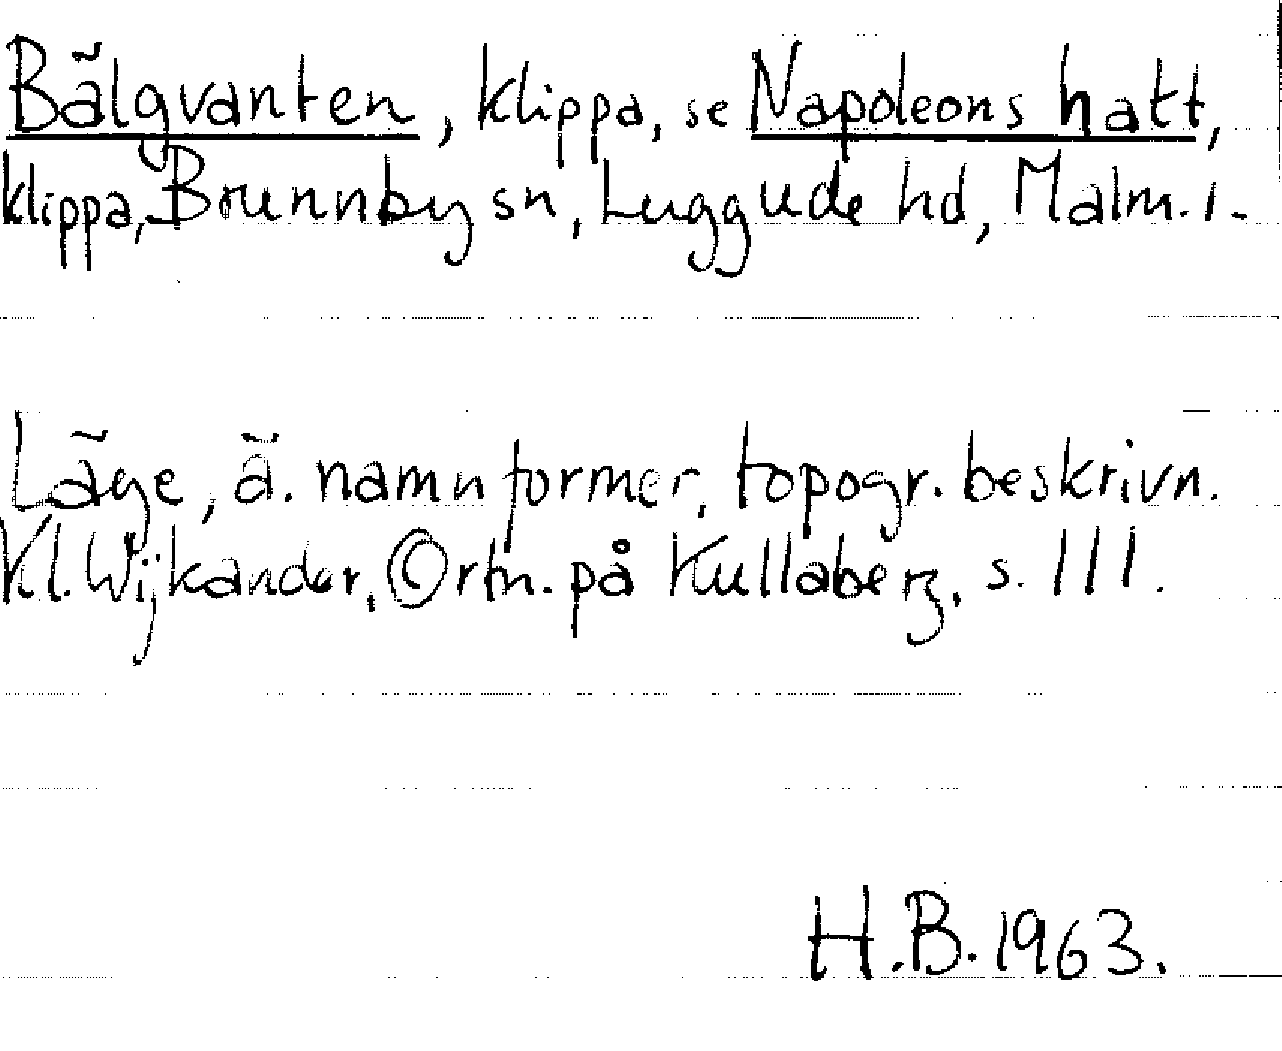 Bälgvanten, klippa, se Napoleons hatt,
klippa, Brunnby sn, Luggude hd, Malm. l.
Läge, ä. namnformer, topogr. beskrivn.
Kl. Wijkander, Ortn. på Kullaberg, s. 111.
H.B. 1963.